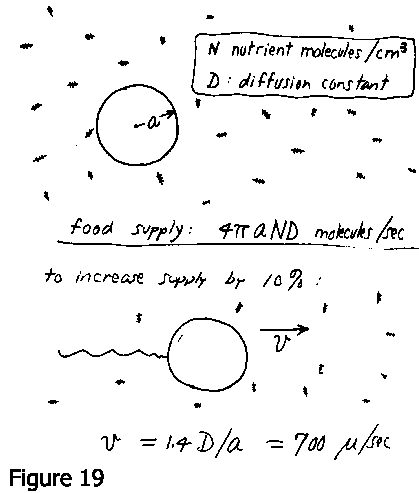 N nutrient molecules/cm³
D : diffusion constant
a
food supply: 4π a N D molecules/sec
to increase supply by 10% :
v
v = 1.4 D/a = 700 μ/sec
Figure 19